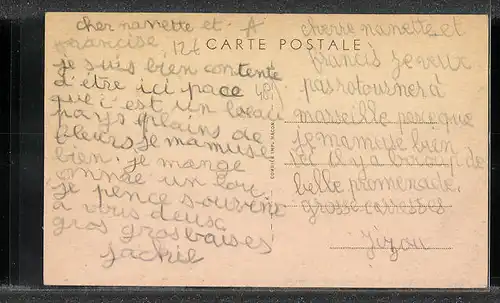 cher nanette et
francise
CARTE POSTALE
je suis bien contente
d'être ici pace
que i est un beau
pays plains de
fleurs je mamuse
bien. je mange
omme un lou
je pence souvent
à vous deusc
gros gros baises
Jackie
cherre nanette et
francis je veux
pas rotourner à
marseille parceque
je mamuse bien
ici il y a boucoup de
belle promenade.
grosse carresses
Zizou